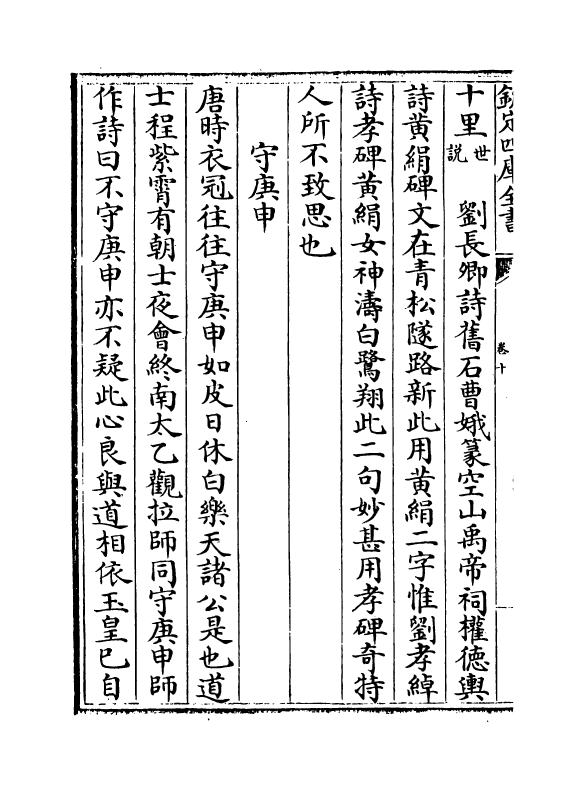 欽定四庫全書
卷十
十里世說　劉長卿詩舊石曹娥篆空山禹帝祠權徳輿
詩黄絹碑文在青松隧路新此用黄絹二字惟劉孝綽
詩孝碑黄絹女神濤白鷺翔此二句妙甚用孝碑奇特
人所不致思也
守庚申
唐時衣冠往往守庚申如皮日休白樂天諸公是也道
士程紫霄有朝士夜會終南太乙觀拉師同守庚申師
作詩曰不守庚申亦不疑此心良與道相依玉皇已自